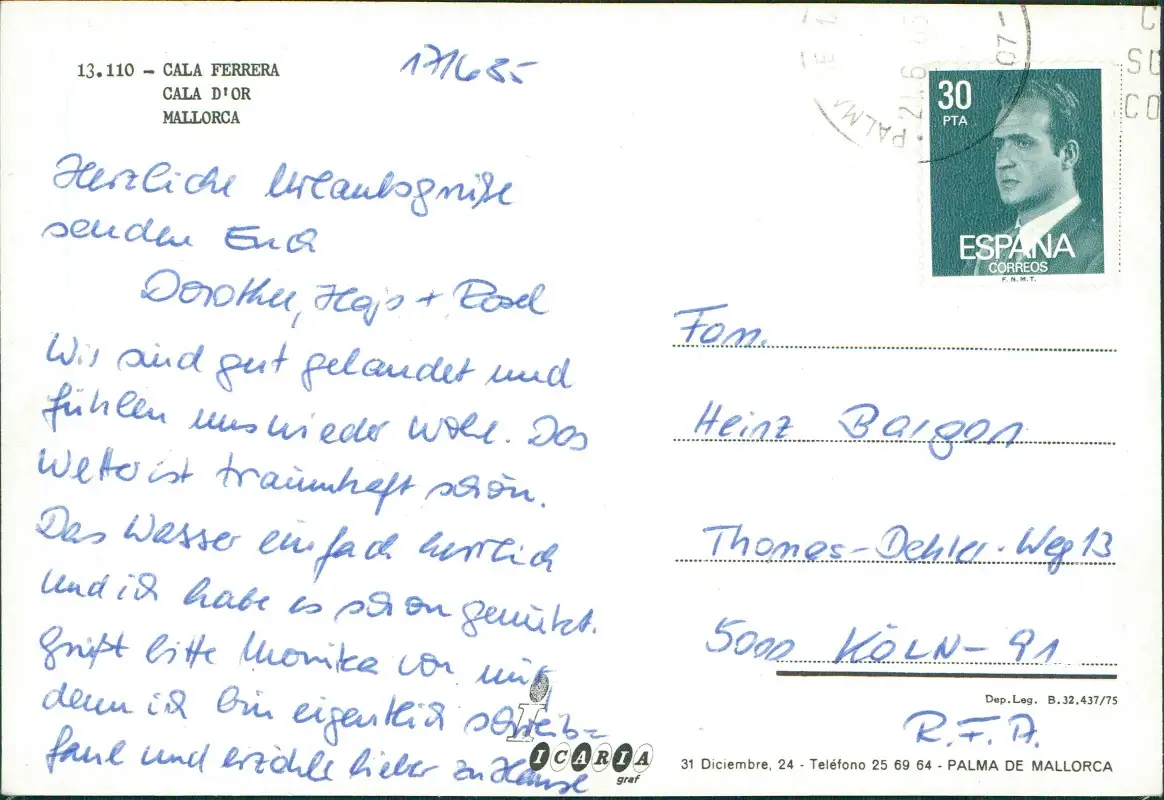 13.110 - CALA FERRERA
CALA D'OR
MALLORCA
17/6 85
Herzliche Urlaubsgrüße
senden Euch
Dorothee, Hajo + Rosel
Wir sind gut gelandet und
fühlen uns wieder wohl. Das
Wetter ist traumhaft schön.
Das Wasser einfach herrlich
und ich habe es schon genützt.
Grüßt bitte Monika von mir,
denn ich bin eigentlich schreib=
faul und erzähle lieber zu Hause
ICARIA
graf
PALMA
21.6
07-
30
PTA
ESPAÑA
CORREOS
F.N.M.T.
Fam.
Heinz Bargon
Thomas-Dehler-Weg 13
5000 KÖLN-91
Dep. Leg. B. 32.437/75
R.F.A.
31 Diciembre, 24 - Teléfono 25 69 64 - PALMA DE MALLORCA